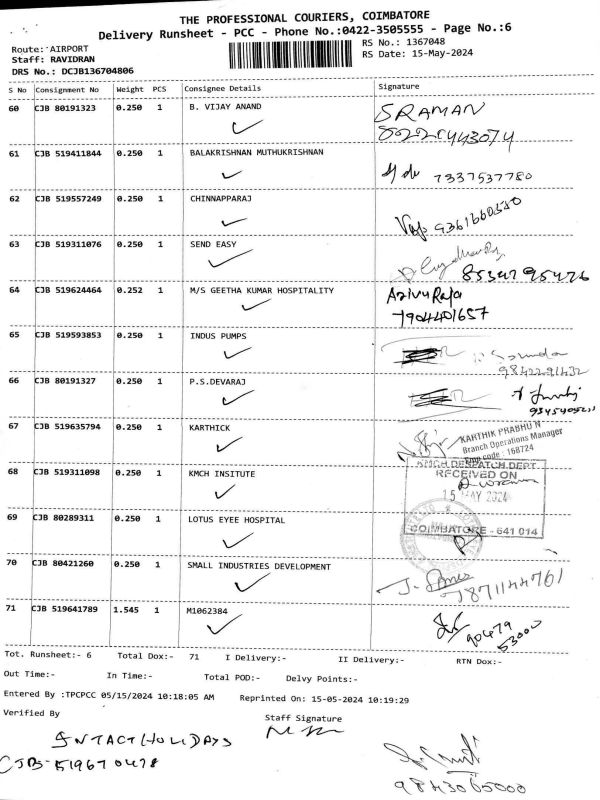 THE PROFESSIONAL COURIERS, COIMBATORE
Delivery Runsheet - PCC - Phone No.:0422-3505555 - Page No.:6
Route: AIRPORT
RS No.: 1367048
Staff: RAVIDRAN
RS Date: 15-May-2024
DRS No.: DCJB136704806
S No Consignment No Weight PCS Consignee Details Signature
60 CJB 80191323 0.250 1 B. VIJAY ANAND SRAMAN
61 CJB 519411844 0.250 1 BALAKRISHNAN MUTHUKRISHNAN 7337537780
62 CJB 519557249 0.250 1 CHINNAPPARAJ
63 CJB 519311076 0.250 1 SEND EASY
64 CJB 519624464 0.252 1 M/S GEETHA KUMAR HOSPITALITY Azivu Raja
7904401657
65 CJB 519593853 0.250 1 INDUS PUMPS
9842291432
66 CJB 80191327 0.250 1 P.S.DEVARAJ
67 CJB 519635794 0.250 1 KARTHICK
KARTHIK PRABHU N
Branch Operations Manager
Emp code : 168724
68 CJB 519311098 0.250 1 KMCH INSITUTE
KMCH DESPATCH DEPT.
RECEIVED ON
15 MAY 2024
COIMBATORE - 641 014
69 CJB 80289311 0.250 1 LOTUS EYEE HOSPITAL
70 CJB 80421260 0.250 1 SMALL INDUSTRIES DEVELOPMENT
7871144761
71 CJB 519641789 1.545 1 M1062384
90479
53000
Tot. Runsheet:- 6 Total Dox:- 71 I Delivery:- II Delivery:- RTN Dox:-
Out Time:- In Time:- Total POD:- Delvy Points:-
Entered By :TPCPCC 05/15/2024 10:18:05 AM Reprinted On: 15-05-2024 10:19:29
Verified By
Staff Signature
INTACT HOLIDAYS
CJB-519670478
9843065000